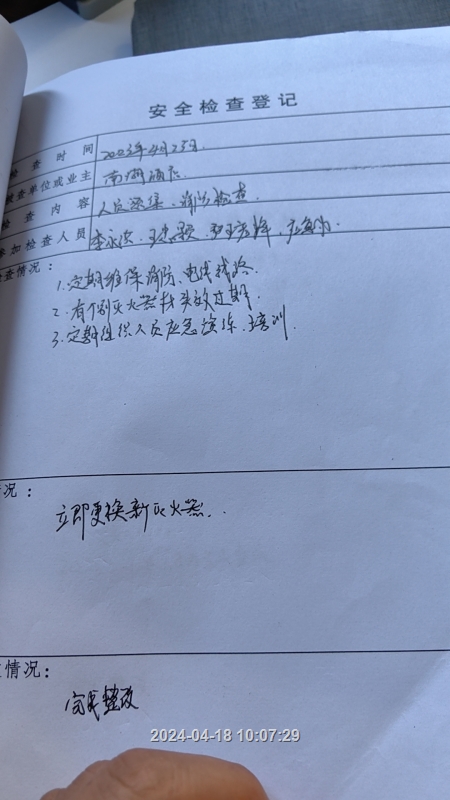 安全检查登记
检查时间 2023年4月23日
被查单位或业主 南湖酒店
检查内容 人员演练、消防检查
参加检查人员 李永洪、
检查情况：
1.定期维保消防、电线线路.
2.有个别灭火器材失效过期.
3.定期组织人员应急演练、培训.
况：
立即更换新灭火器.
情况：
完成整改
2024-04-18 10:07:29